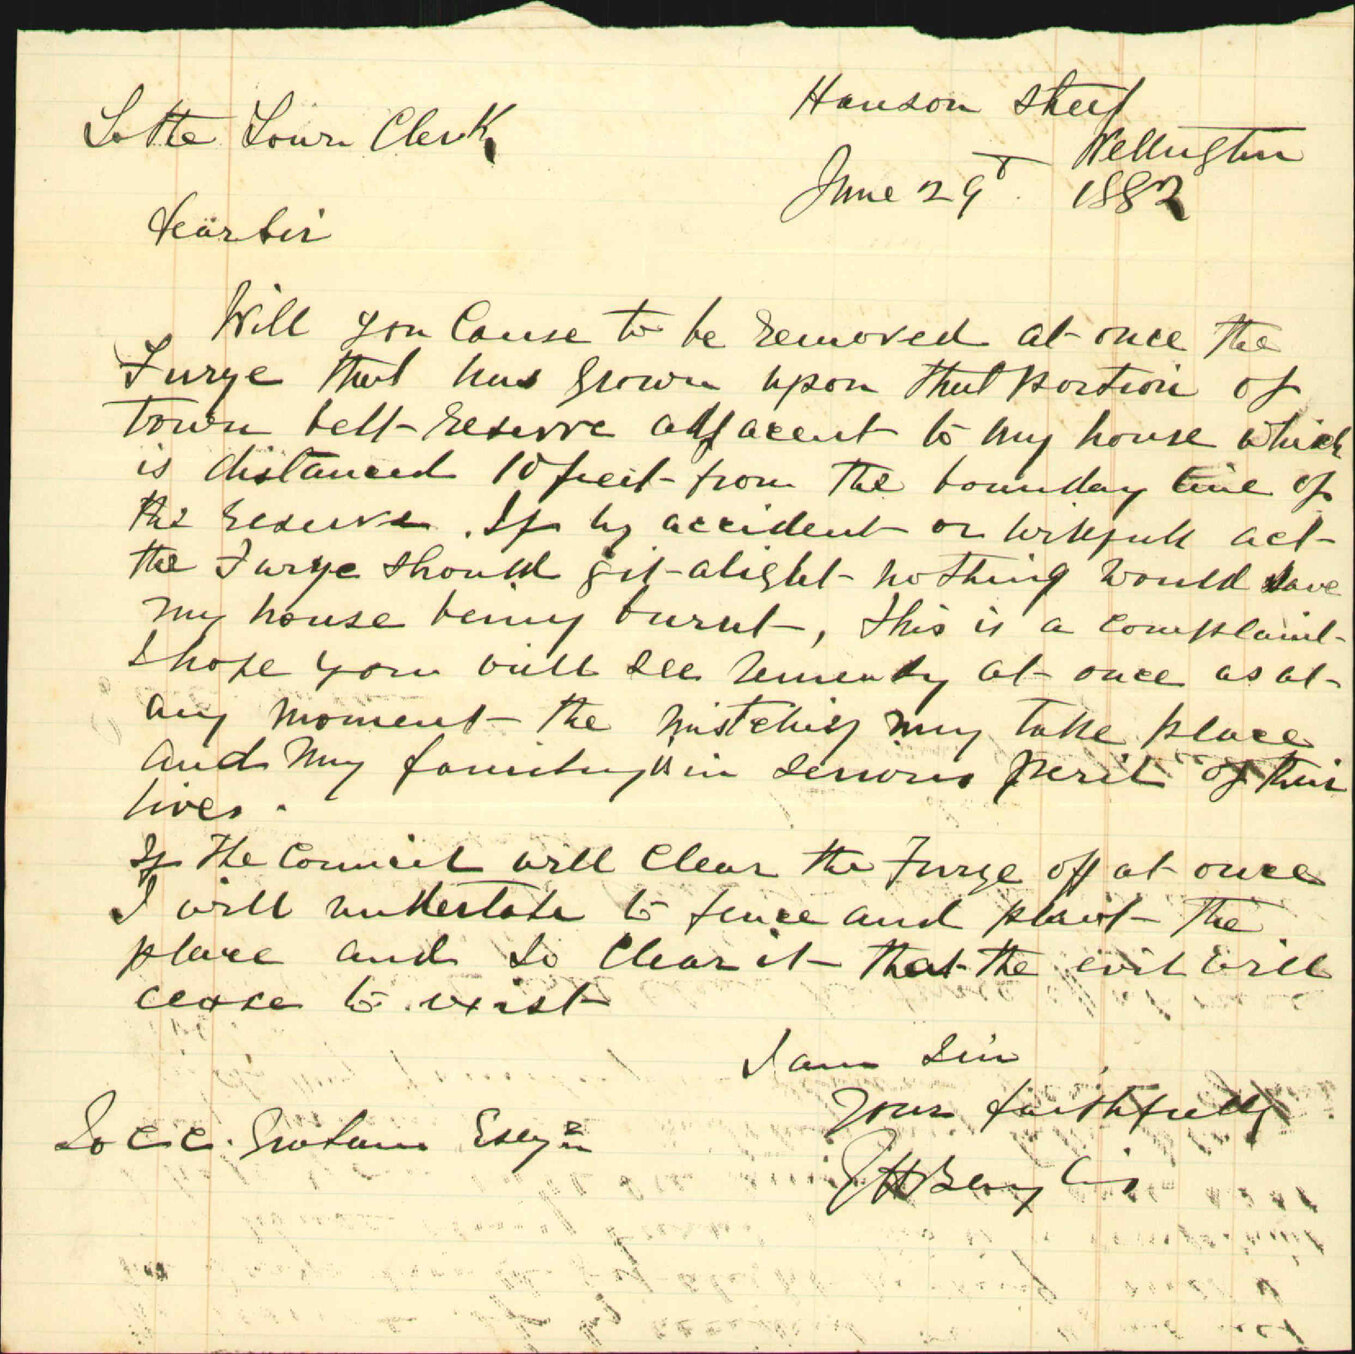 Hanson Street
Wellington
To the Town Clerk
June 29th. 1882
Dear Sir
Will you Cause to be removed at once the
Furze that has grown upon that portion of
town belt reserve adjacent to my house which
is distanced 10 feet from the boundary line of
the reserve. If by accident or wilfull act
the Furze should git alight nothing would save
my house being burnt, this is a complaint
I hope you will see remendy at once as at
any moment the mistchif may take place
and My family in serious peril of their
lives.
If the Council will Clear the Furze off at once
I will undertake to fence and plant the
place and so Clear it that the evil will
cease to exist
I am Sir
Your faithfully
To C. C. Graham Esqre